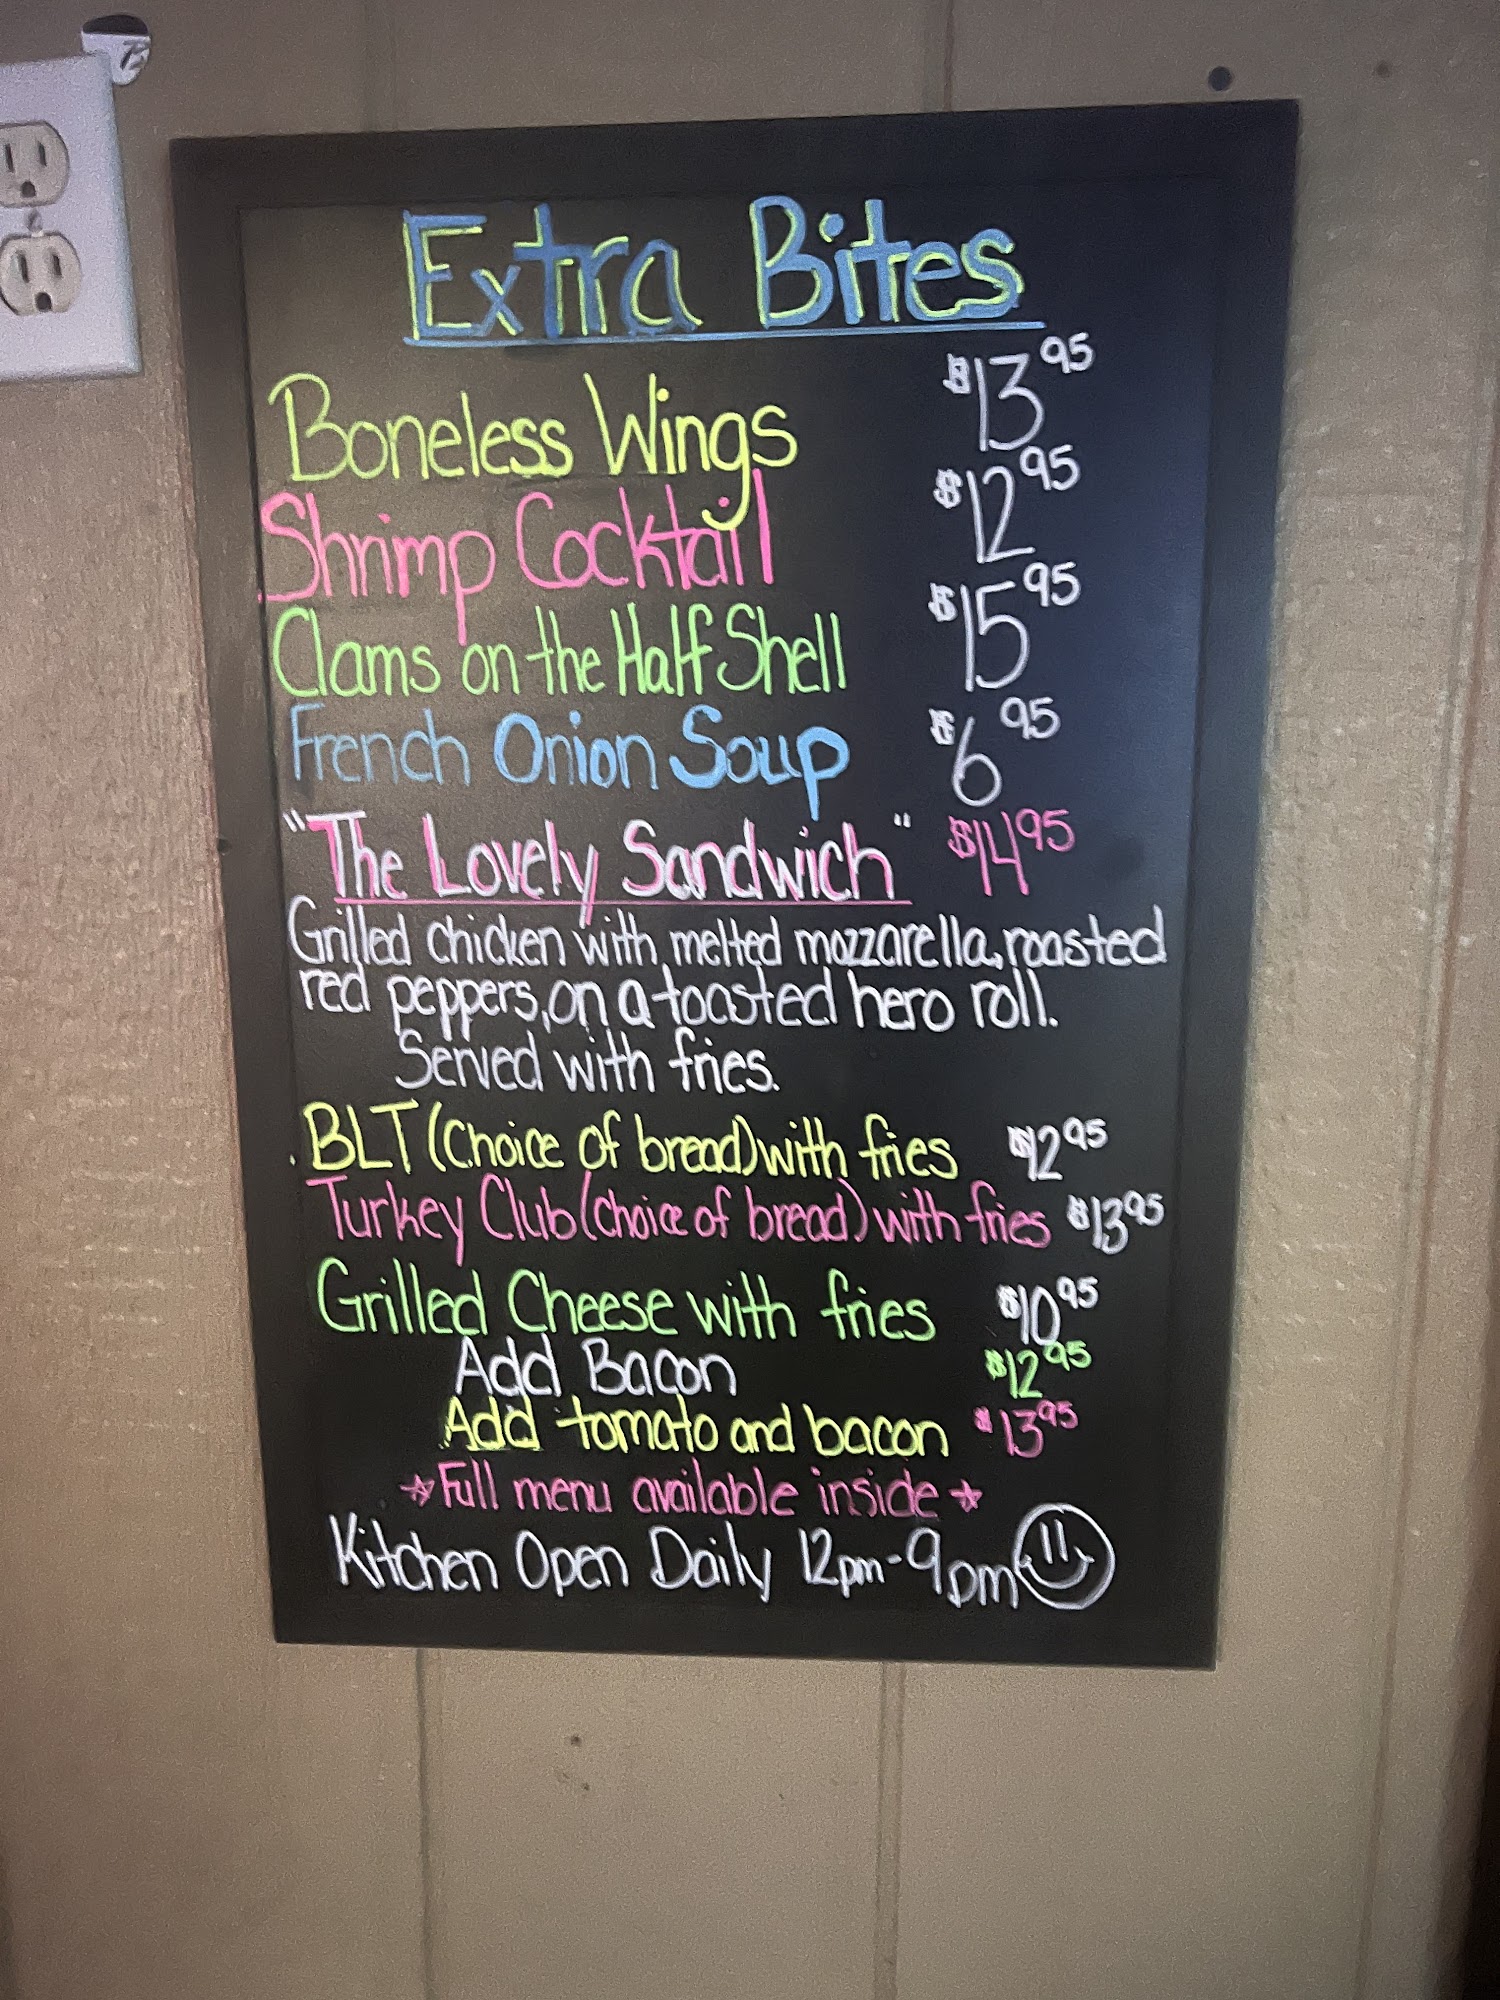 Extra Bites
Boneless Wings $13.95
Shrimp Cocktail $12.95
Clams on the Half Shell $15.95
French Onion Soup $6.95
"The Lovely Sandwich" $14.95
Grilled chicken with melted mozzarella, roasted
red peppers, on a toasted hero roll.
Served with fries.
BLT (choice of bread) with fries $12.95
Turkey Club (choice of bread) with fries $13.95
Grilled Cheese with fries $10.95
Add Bacon $12.95
Add tomato and bacon $13.95
☆Full menu available inside☆
Kitchen Open Daily 12pm-9pm